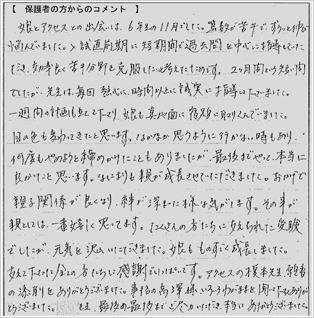 【 保護者の方からのコメント 】
娘とアクセスとの出会いは、6年生の11月でした。算数が苦手で、ずっと
悩んでいました。入試直前期に短期間で過去問を中心に指導していた
だき、効率良く苦手分野を克服したいと考えたためです。2ヶ月間という短い間
でしたが、先生は、毎回熱心に、時間以上に誠実に指導下さいました。
一週間の計画も立て下さり、娘も真面目に宿題に取りくんでいました。
目の色も変わってきたと思います。なかなか思うように行かない時もあり、
何度もやめようと諦めかけたこともありましたが、最後までやって、本当に
良かったと思います。なによりも親が成長させていただきました。おかげで
親子関係が良くなり、絆が深まった様な気がします。その事が
親としては、一番嬉しく思ってます。たくさんの方たちに支えられた受験
でしたが、元気を沢山いただきました。娘ももの凄く成長しました。
支えて下さった全ての方たちに感謝でいっぱいです。アクセスの榎本先生、願書
の添削をありがとうございました。事務の高澤様、いろいろわがままを聞いて下さりありが
とうございました。最後の最後までご尽力いただき、本当にありがとうございました。